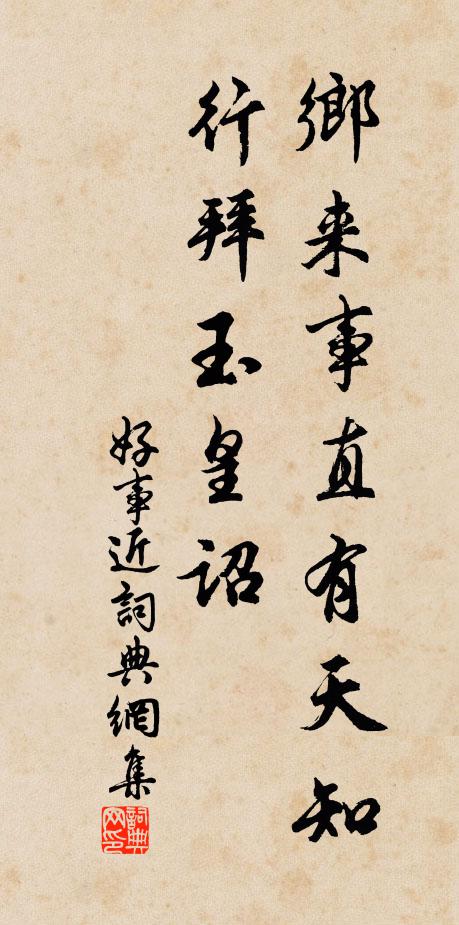 鄉来事直有天知
行拜玉皇詔
好事近詞典網集
詞典网印